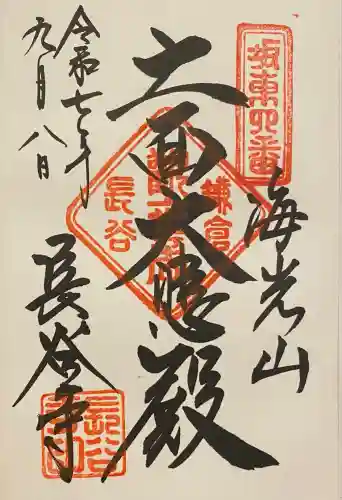 坂東四番
海光山
十一面大悲殿
鎌倉
長谷
令和七年
九月八日
長谷寺